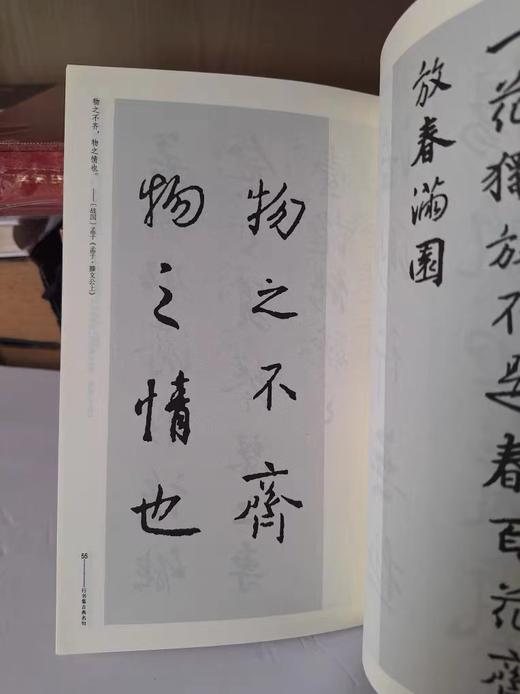 一花獨放不是春百花齊
放春滿園
物之不齊
物之情也
物之不齐，物之情也。
——〔战国〕孟子《孟子·滕文公上》
55——行书集古典名句